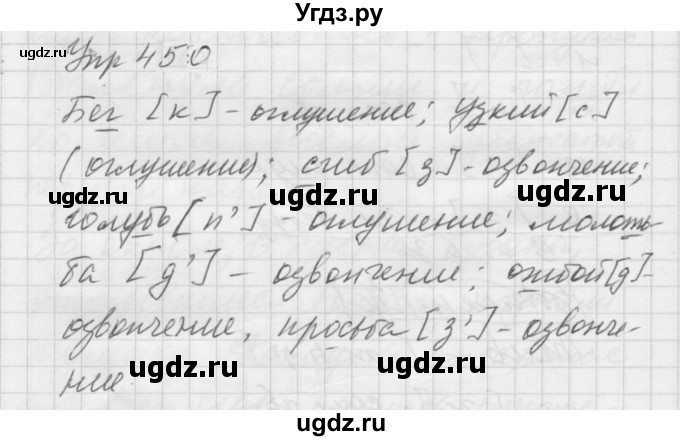 Угдз.ру
Упр 450
Бег [к] - оглушение; узкий [с]
(оглушение); сгиб [з] - озвончение;
голубь [п'] - оглушение; молоть-
ба [д'] - озвончение; отбой [д] -
озвончение, просьба [з'] - озвонче-
ние.
ugdz.ru
ugdz.ru
ugdz.ru
ugdz.ru
ugdz.ru
ugdz.ru
ugdz.ru
ugdz.ru
ugdz.ru
ugdz.ru